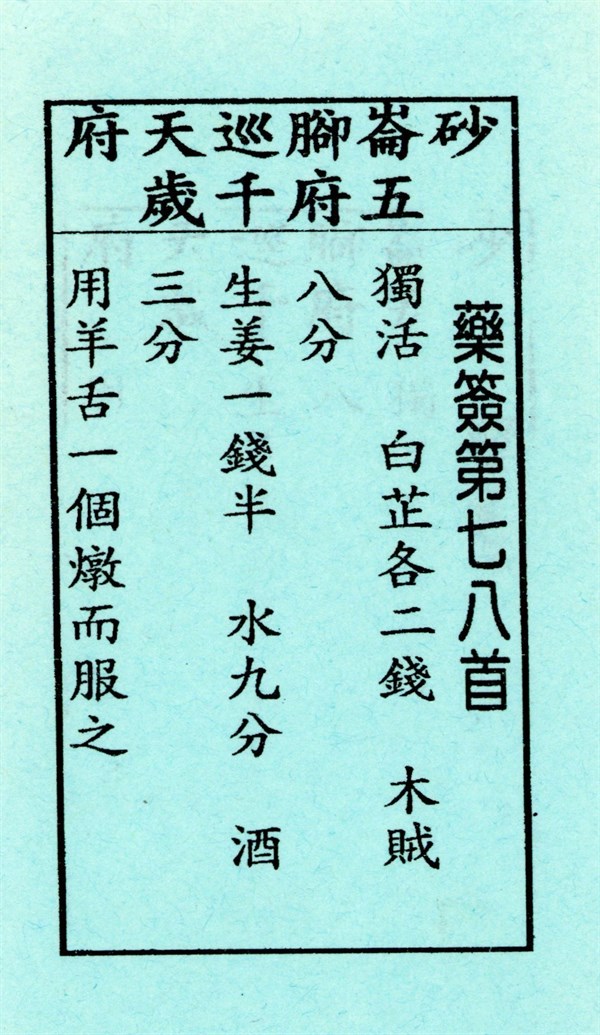 砂崙腳巡天府
五府千歲
藥簽第七八首
獨活 白芷各二錢 木賊
八分
生姜一錢半 水九分 酒
三分
用羊舌一個燉而服之